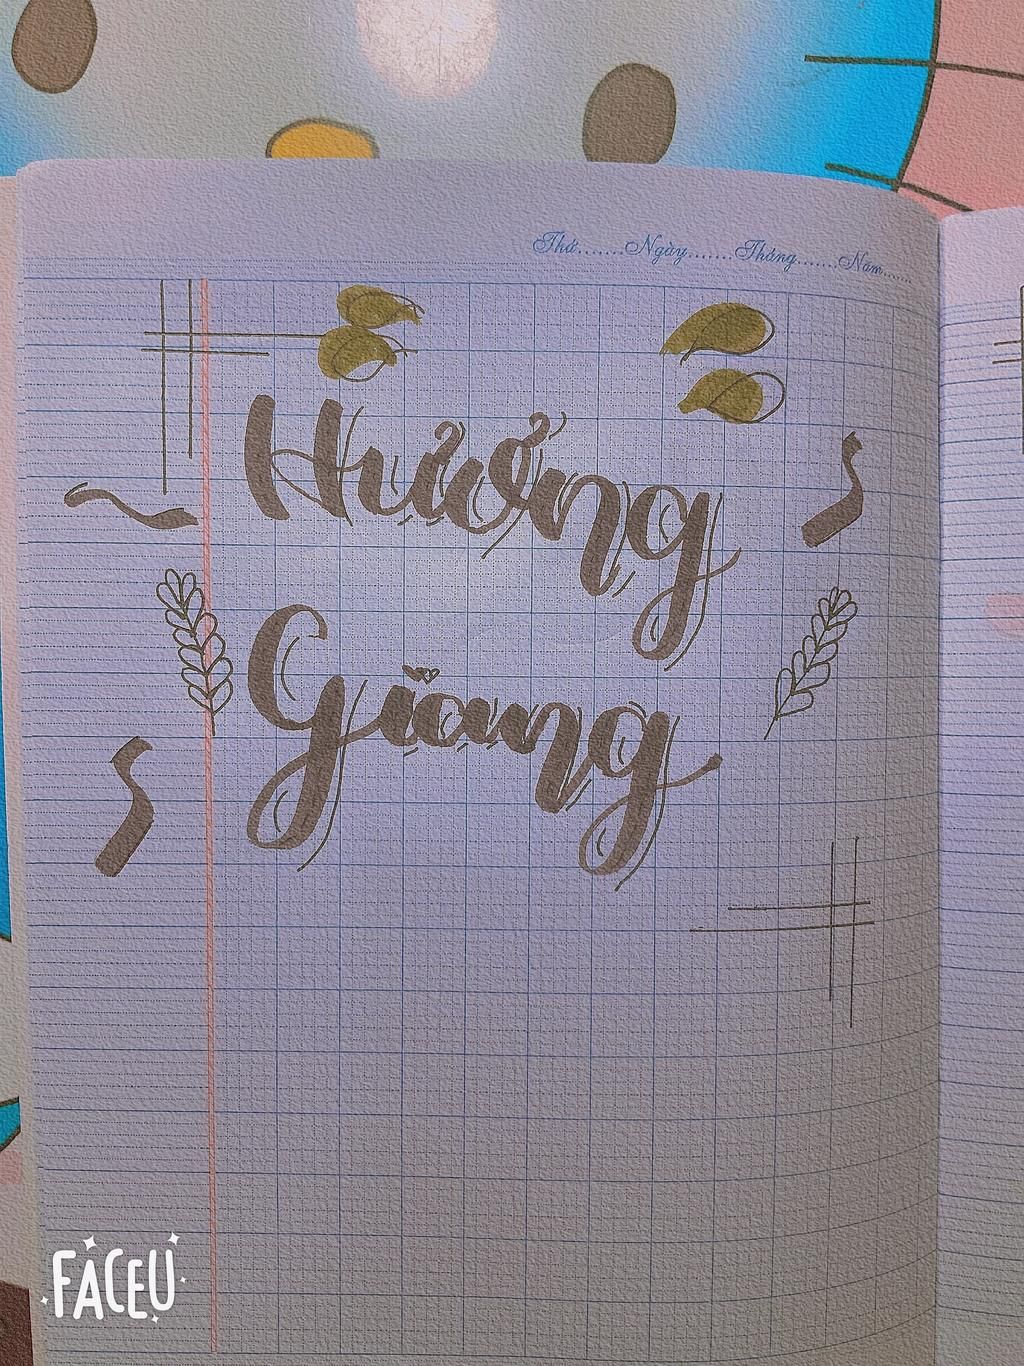 Thứ.......Ngày.......Tháng.......Năm......
Hương
Giang
FACEU